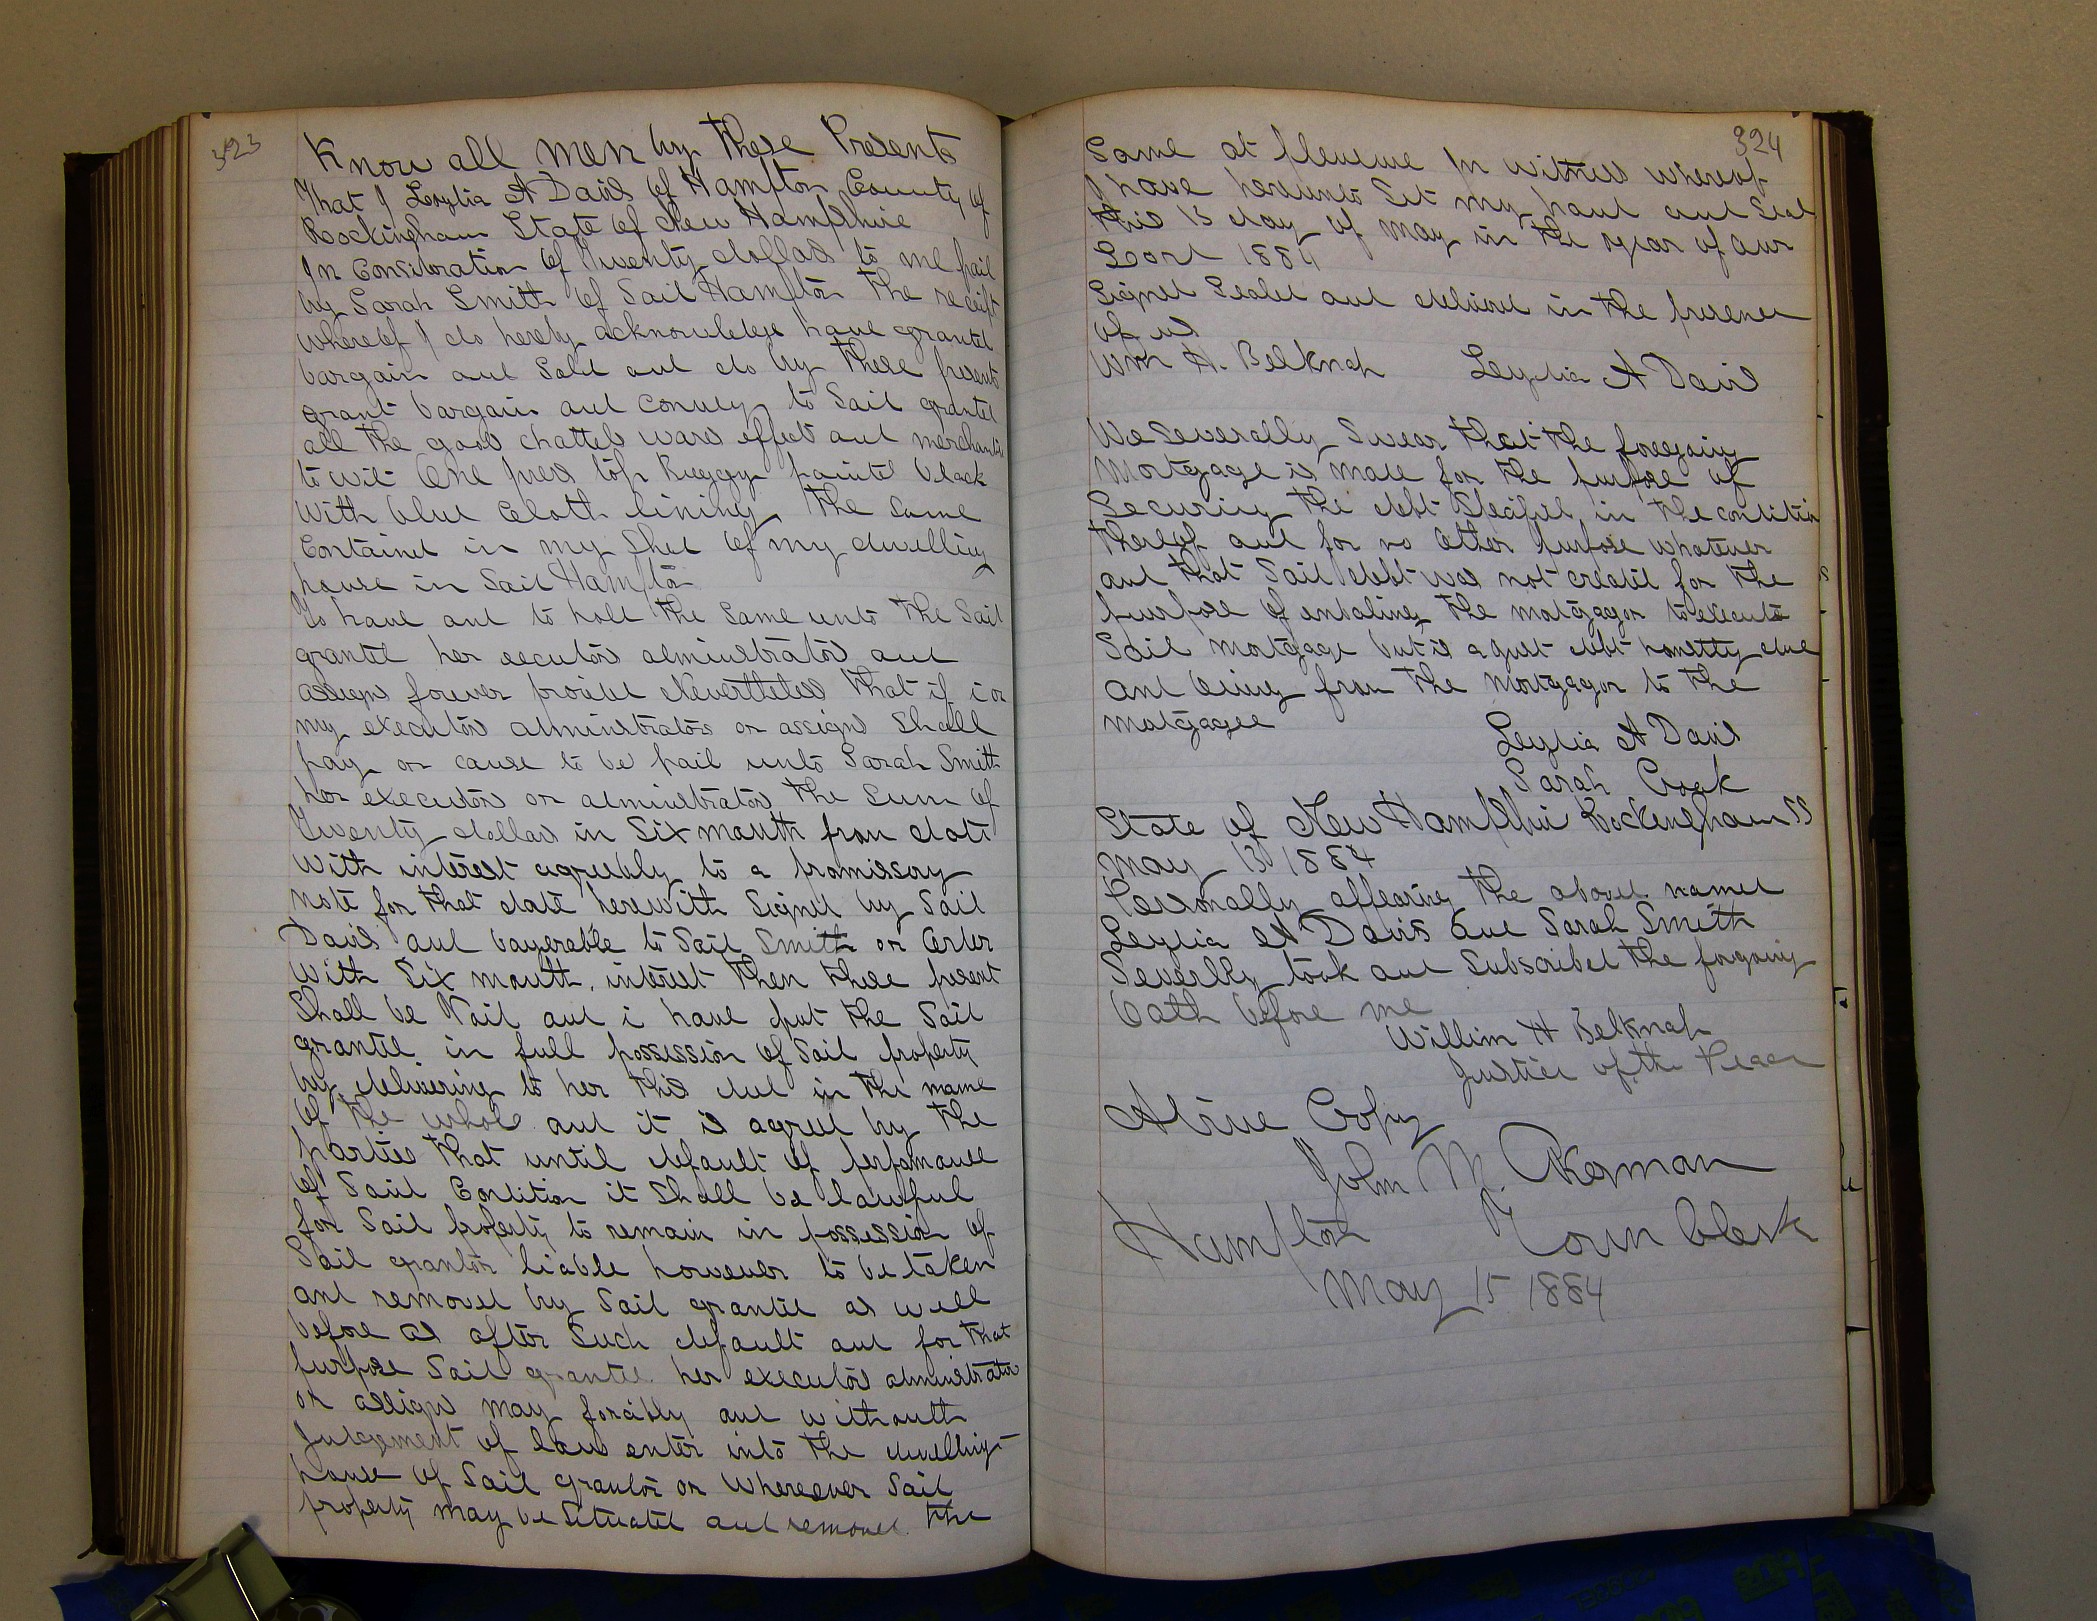 323
Know all men by these Presents
That I Leylia A Davis of Hampton County of
Rockingham State of New Hampshire
In Consideration of Twenty dollars to me paid
by Sarah Smith of Said Hampton the receipt
whereof I do hereby acknowledge have granted
bargain and Sold and do by these presents
grant bargain and convey to Said grantee
all the goods chattels wars effect and merchandis
to wit One top Buggy painted black
With blue Cloth lining The Same
Contained in my Shed of my dwelling
house in Said Hampton
To have and to hold the Same unto the Said
grantee her executors administrators and
assigns forever provided Nevertheless that if i or
my executors administrators or assigns Shall
pay or cause to be paid unto Sarah Smith
her executors or administrators the Sum of
Twenty dollars in Six month from date
With interest agreebly to a promissory
note for that date herewith Signed by Said
Davis and bayerable to Said Smith or Order
With Six month interest then these present
Shall be Void and i have put the Said
grantee in full possession of Said property
by delivering to her this deed in the name
of the whole and it is agreed by the
parties that until default of perfomance
of Said Condition it Shall be lawful
for Said property to remain in possession of
Said grantor liable however to be taken
and removed by Said grantee as well
before as after Such default and for that
purpose Said grantee her executors administrators
or assigns may forcibly and without
Judgement of law enter into the dwelling
house of Said grantor or Whereever Said
property may be Situated and remove the
324
Same at In witness whereof
I have hereunto Set my hand and Seal
this 13 day of may in the year of our
Lord 1884
Signed Sealed and delivired in the presence
of us
Wm H. Belknap Leylia A Davis
We Severally Swear that the foregoing
Mortgage is made for the purpose of
Securing the debt Specified in the condition
thereof and for no other purpose whatever
and that Said debt was not created for the
purpose of enabling the mortgagor to execute
Said mortgage but is a just debt honestly due
and owing from the mortgagor to the
mortgagee
Leylia A Davis
Sarah Cook
State of New Hampshire Rockingham SS
may 13 1884
Personally appearing the above named
Leylia A Davis and Sarah Smith
Severlly took and Subscribed the forgoing
Oath before me
Willim H Belknap
Justice of the Peace
A true Copy
John M. Akerman
Hampton Town Clerk
May 15 1884